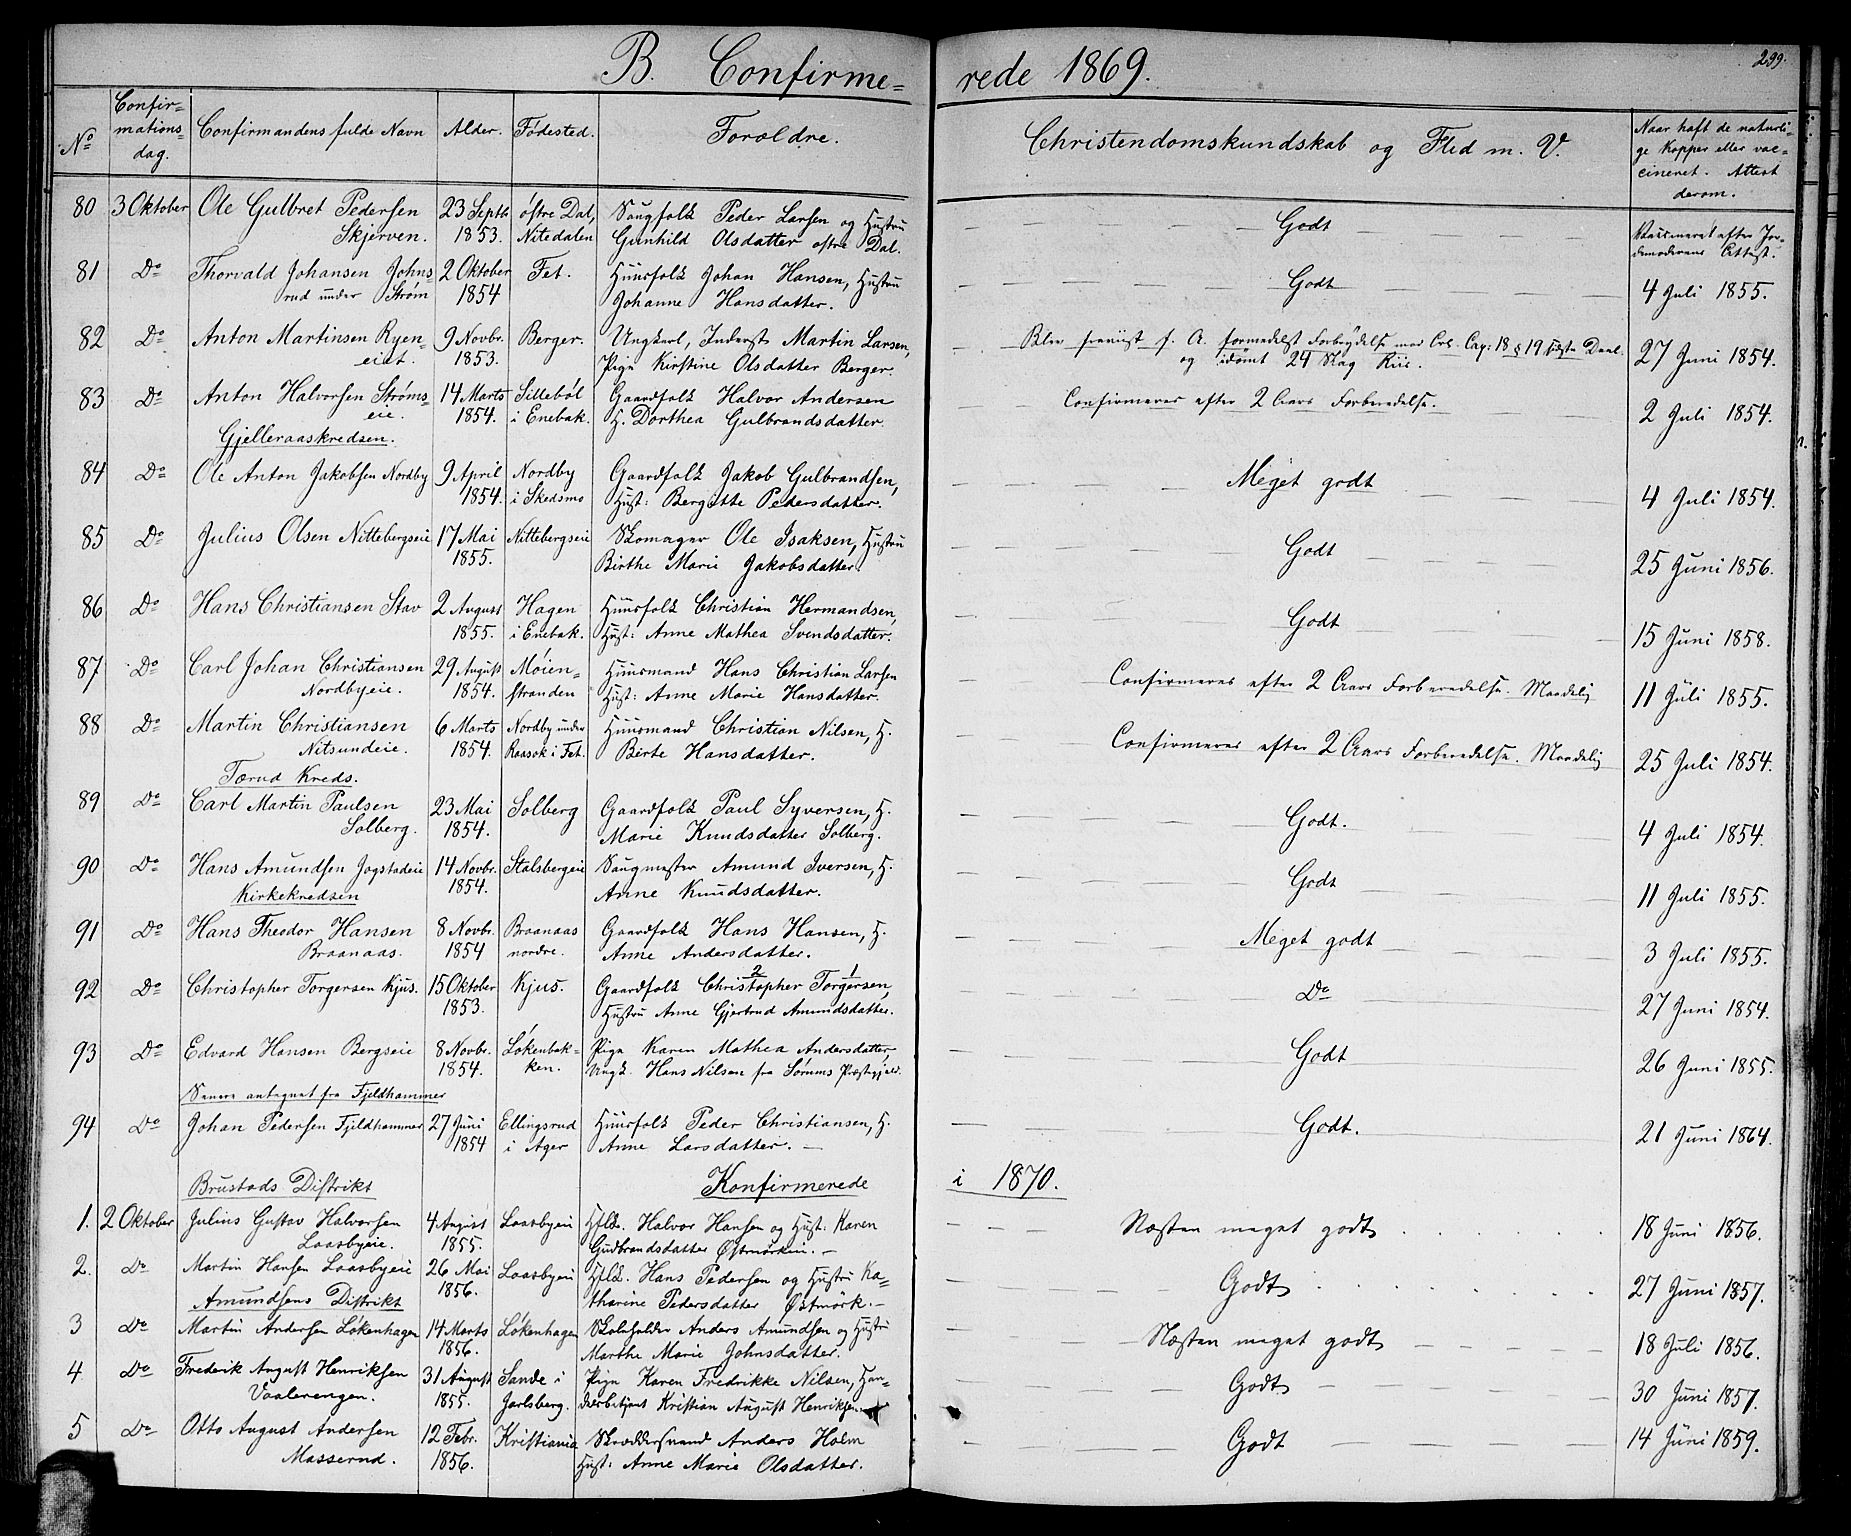 B. Confirmerede 1869.
299.
No
Confirmationsdag.
Confirmandens fulde Navn
Alder.
Fødested.
Foroldre.
Christendomskundskab og Flid m. V.
Naar haft de naturlige Kopper eller vaccineret. Attest derom.
80 3 Oktober Ole Gulbret Pedersen 23 Septb. østre Dal, Saugfolk Peder Larsen og Hustru — Godt
Skjerven. 1853. Nitedalen Gunhild Olsdatter østre Dal. Vaccineret efter Jordemoderens Attest.
81 Do Thorvald Johansen Johns- 2 Oktober Fet. Huusfolk Johan Hansen, Hustru — Godt — 4 Juli 1855.
rud under Strøm 1854 Johanne Hansdatter.
82 Do Anton Martinsen Ryen- 9 Novbr. Berger. Ungkarl, Inderst Martin Larsen, — Blev f. A. formedelst Forbrydelse mod Crl. Cap: 18 § 19 sidste Deel.
eiet. 1853. Pige Kirstine Olsdatter Berger. og idømt 24 Slag Riis. 27 Juni 1854.
83 Do Anton Halvorsen Strøms- 14 Marts Sillebøl Gaardfolk Halvor Andersen — Confirmeres efter 2 Aars Forberedelse. — 2 Juli 1854.
eie. 1854. i Enebak. H. Dorthea Gulbrandsdatter.
Gjelleraaskredsen.
84 Do Ole Anton Jakobsen Nordby 9 April Nordby Gaardfolk Jakob Gulbrandsen, — Meget godt — 4 Juli 1854.
1854. i Skedsmo Hust: Bergitte Pedersdatter.
85 Do Julius Olsen Nittebergseie 17 Mai Nittebergseie Skomager Ole Isaksen, Hustru — Godt — 25 Juni 1856.
1855. Birthe Marie Jakobsdatter.
86 Do Hans Christiansen Stav 2 August Hagen Huusfolk Christian Hermandsen, — Godt — 15 Juni 1858.
1855. i Enebak. Hust: Anne Mathea Svendsdatter.
87 Do Carl Johan Christiansen 29 August Møien- Huusmand Hans Christian Larsen — Confirmeres efter 2 Aars Forberedelse. Maadelig 11 Juli 1855.
Nordbyeie. 1854. stranden Hust: Anne Marie Hansdatter.
88 Do Martin Christiansen 6 Marts Nordby under Huusmand Christian Nilsen, H. — Confirmeres efter 2 Aars Forberedelse. Maadelig 25 Juli 1854.
Nitsundeie. 1854. Raasok i Fet. Birte Hansdatter.
Tærud Kreds.
89 Do Carl Martin Paulsen 23 Mai Solberg Gaardfolk Paul Syversen, H. — Godt. — 4 Juli 1854.
Solberg. 1854. Marie Knudsdatter Solberg.
90 Do Hans Amundsen Jogstadeie 14 Novbr. Stalsbergeie Saugmester Amund Iversen, H. — Godt — 11 Juli 1855.
1854. Anne Knudsdatter.
Kirkekredsen
91 Do Hans Theodor Hansen 8 Novbr. Braanaas Gaardfolk Hans Hansen, H. — Meget godt — 3 Juli 1855.
Braanaas. 1854 nordre. Anne Andersdatter.
92 Do Christopher Torgersen Kjus. 15 Oktober Kjus. Gaardfolk Christopher 2 Torgersen 1, — Do — 27 Juni 1854.
1853. Hustru Anne Gjertrud Amundsdatter.
93 Do Edvard Hansen Bergseie 8 Novbr. Løkenbak- Pige Karen Mathea Andersdatter, — Godt — 26 Juni 1855.
1854. ken. Ungk. Hans Nilsen fra Sørums Præstegjeld.
Senere antegnet fra Fjeldhammer
94 Do Johan Pedersen Fjeldhammer 27 Juni Ellingsrud Huusfolk Peder Christiansen, H. — Godt. — 21 Juni 1864.
1854 i Ager Anne Larsdatter. —
Brustads Distrikt Konfirmerede i 1870.
1. 2 Oktober Julius Gustav Halvorsen 4 August Laasbyeie Hflk. Halvor Hansen og Hust: Karen — Næsten meget godt 18 Juni 1856.
Laasbyeie. 1855. Gudbrandsdatter Østmorken. —
2. Do Martin Hansen Laasbyeie 26 Mai Laasbyeie Hflk. Hans Pedersen og Hustru Ka- — Godt 27 Juni 1857.
1856. tharine Pedersdatter Østmørk. —
Amundsens Distrikt
3 Do Martin Andersen Løkenhagen 14 Marts Løkenhagen Skoleholder Anders Amundsen og Hustru — Næsten meget godt — 18 Juli 1856.
1856. Marthe Marie Johnsdatter.
4 Do Frederik August Henriksen 31 August Sande i Pige Karen Fredrikke Nilsen, Han- — Godt — 30 Juni 1857.
Vaalerengen. 1855. Jarlsberg. delsbetjent Kristian August Henriksen.
5 Do Otto August Andersen 12 Febr. Kristiania Skræddersvend Anders Holm — Godt — 14 Juni 1859.
Masserud. 1856. Hust: Anne Marie Olsdatter.